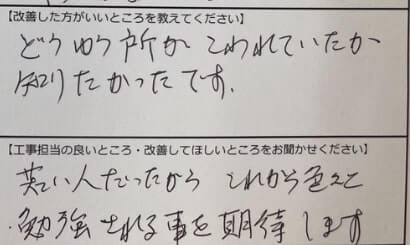 【改善した方がいいところを教えてください】
どうゆう所が こわれていたか
知りたかったです.
【工事担当の良いところ・改善してほしいところをお聞かせください】
若い人だったから これから
勉強される事を期待します